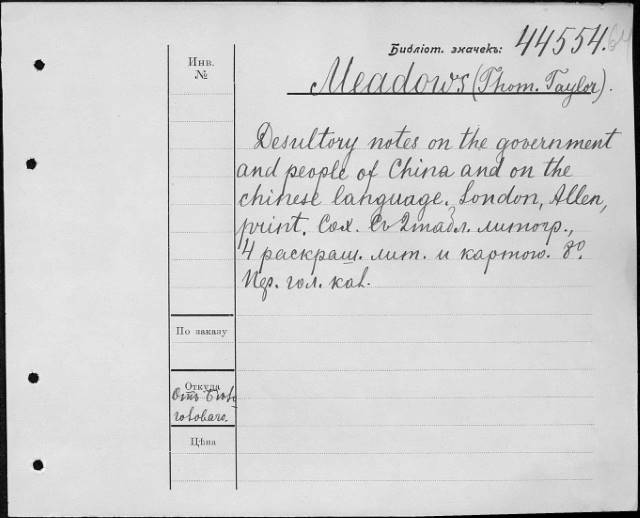 Библіот. значекъ: 44554.
Инв.
№
Meadows (Thom. Taylor).
Desultory notes on the government
and people of China and on the
chinese language. London, Allen,
print. Съ 2 табл. литогр.,
4 раскраш. лит. и картою. 8º.
По заказу
Откуда
Отъ
Цѣна